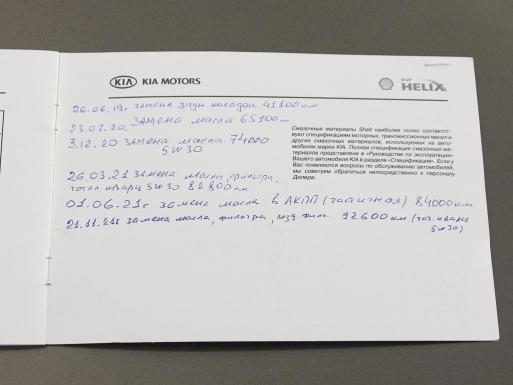 KIA KIA MOTORS
Shell
HELIX
26.06.19г замена задн. колодок 41100км
23.07.20. замена масла 65100км
3.12.20 замена масла 74000
5w30
26.03.21 замена масла, фильтра,
тотал кварц 5w30 82800км
01.06.21г замена масла в АКПП (частичная) 84000км
21.11.21г замена масла, фильтра, возд. фильт. 92600км (тот. кварц
5w30)
Смазочные материалы Shell наиболее полно соответст-
вуют спецификациям моторных, трансмиссионных масел и
других смазочных материалов, используемых на авто-
мобилях марки KIA. Полная спецификация смазочных ма-
териалов представлена в «Руководстве по эксплуатации»
Вашего автомобиля KIA в разделе «Спецификации». Если у
Вас появляются вопросы по обслуживанию автомобилей,
мы советуем обратиться непосредственно к персоналу
Дилера.